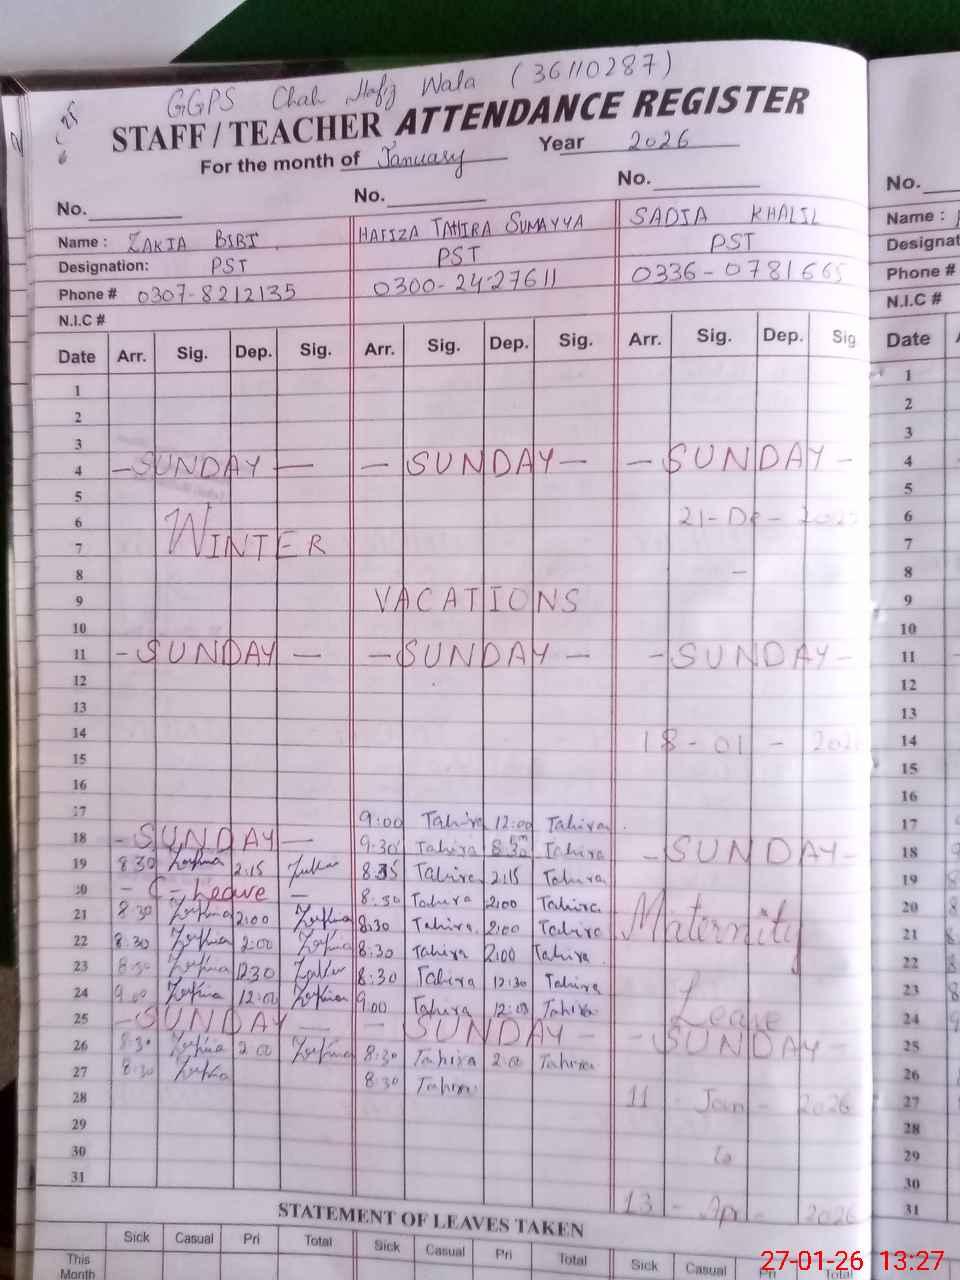 GGPS Chah Hafiz Wala (36110287)
STAFF / TEACHER ATTENDANCE REGISTER
For the month of January Year 2026
No. No. No. No.
Name : ZAKIA BIBI HAFIZA TAHIRA SUMAYYA SADIA KHALIL Name :
Designation: PST PST PST
Phone # 0307-8212135 0300-2427611 0336-0781665 Phone #
N.I.C # N.I.C #
Date Arr. Sig. Dep. Sig. Arr. Sig. Dep. Sig. Arr. Sig. Dep. Sig Date
1 1
2 2
3 3
4 - SUNDAY - - SUNDAY - - SUNDAY - 4
5 5
6 6
7 WINTER 7
8 - 8
9 VACATIONS 9
10 10
11 - SUNDAY - - SUNDAY - - SUNDAY - 11
12 12
13 13
14 18 - 01 - 14
15 15
16 16
17 9:00 Tahira 12:00 Tahira 17
18 - SUNDAY - 9:30 Tahira 8:30 Tahira - SUNDAY - 18
19 8:30 2:15 8:35 Tahira 2:15 Tahira 19
20 - C - Leave - 8:30 Tahira 2:00 Tahira 20
21 8:30 2:00 8:30 Tahira 2:00 Tahira Maternity 21
22 8:30 2:00 8:30 Tahira 2:00 Tahira 22
23 8:30 12:30 8:30 Tahira 12:30 Tahira 23
24 9:00 12:00 9:00 Tahira 12:00 Tahira Leave 24
25 - SUNDAY - - SUNDAY - - SUNDAY - 25
26 8:30 2:00 8:30 Tahira 2:00 Tahira 26
27 8:30 8:30 Tahira 11 - Jan - 2026 27
28 28
29 29
30 to 30
31 13 - Apr - 2026 31
STATEMENT OF LEAVES TAKEN
Sick Casual Pri Total Sick Casual Pri Total Sick Casual Pri Total
This Month
27-01-26 13:27